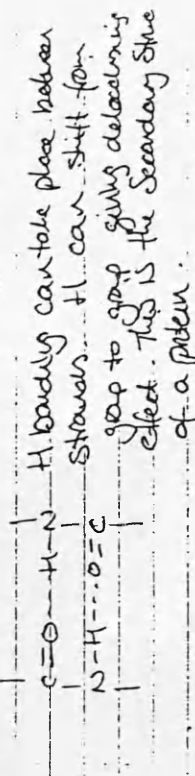 C=O---H-N
N-H---O=C
H bonding can take place between
strands. H can shift from
group to group giving
effect. This is the Secondary Struc
of a protein.